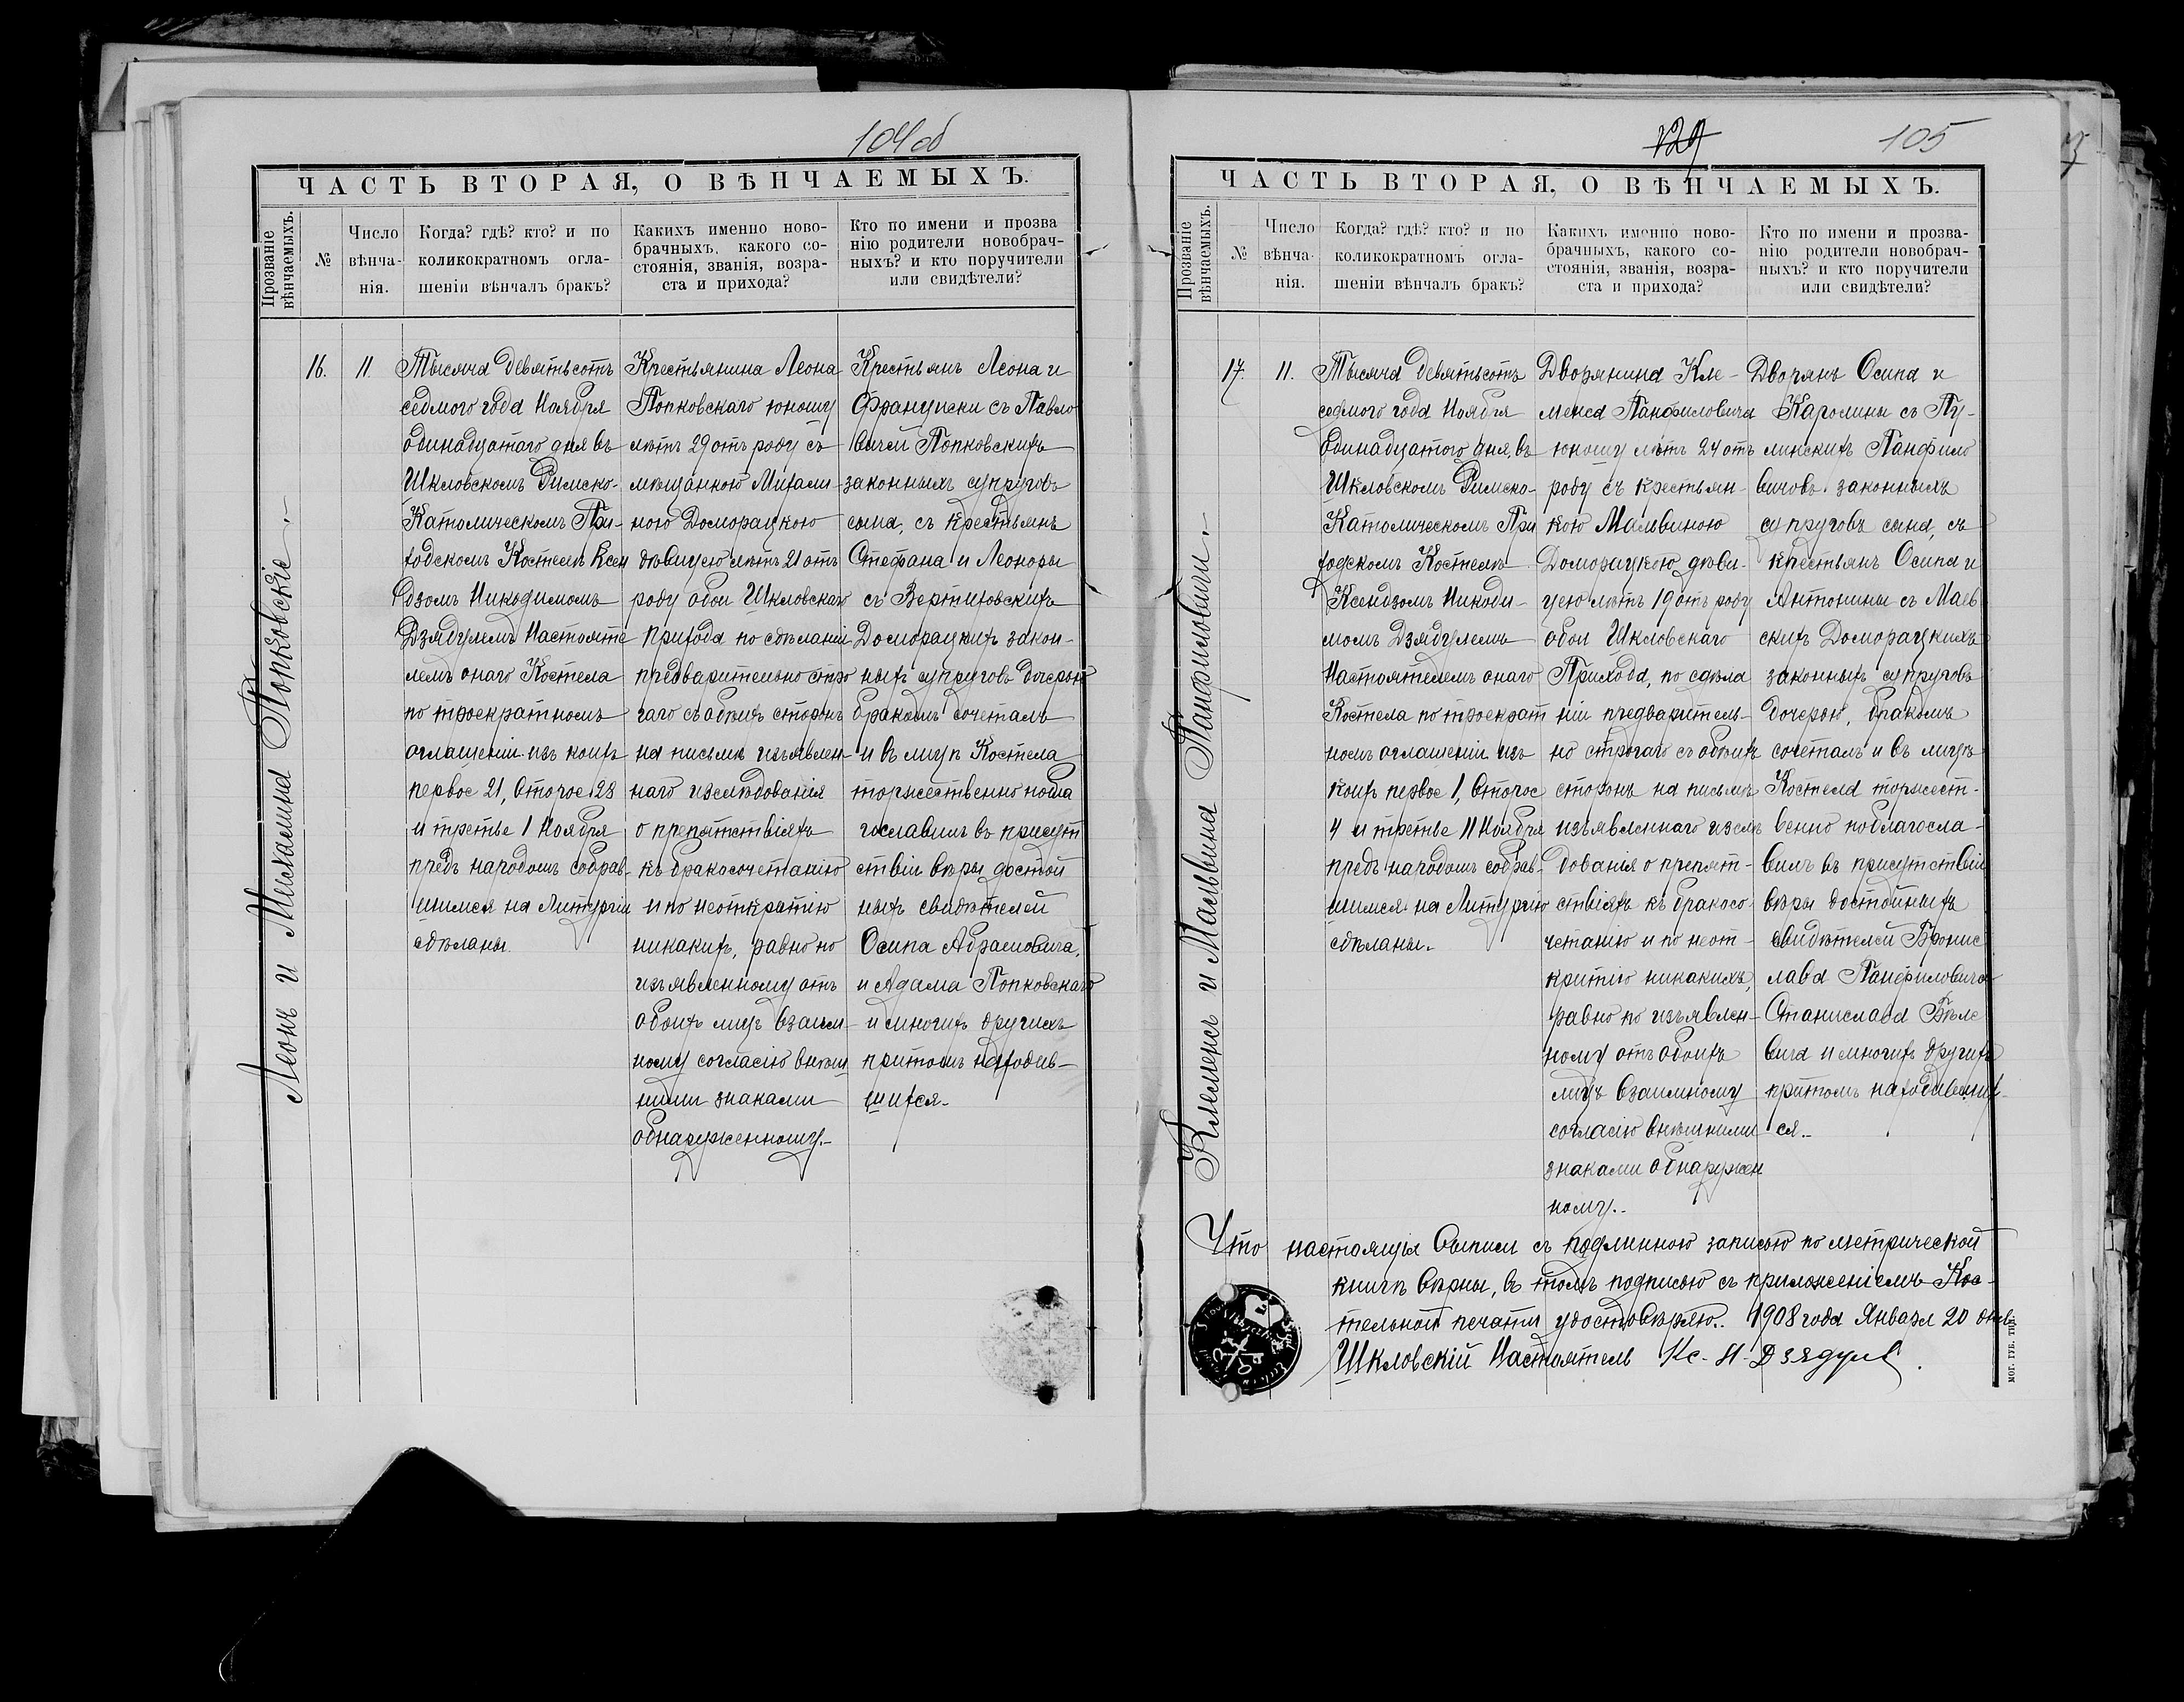 104об
ЧАСТЬ ВТОРАЯ, О ВѢНЧАЕМЫХЪ.
Прозваніе
вѣнчаемыхъ.
№
Число
вѣнча-
нія.
Когда? гдѣ? кто? и по
коликократномъ огла-
шеніи вѣнчалъ бракъ?
Какихъ именно ново-
брачныхъ, какого со-
стоянія, званія, возра-
ста и прихода?
Кто по имени и прозва
нію родители новобрач-
ныхъ? и кто поручители
или свидѣтели?
Леонъ и Михалина Попковскіе.-
16.
11.
Тысяча девятьсотъ
седмого года Ноября
одинадцатаго дня въ
Шкловскомъ Римско-
Католическомъ При-
ходскомъ Костелѣ Ксен
дзомъ Никодимомъ
Дзядулемъ Настояте
лемъ онаго Костела
по троекратномъ
оглашеніи изъ коихъ
первое 21, второе 28
и третье 1 Ноября
предъ народомъ собрав-
шимся на Литургіи
сдѣланы.
Крестьянина Леона
Попковскаго юношу
лѣтъ 29 отъ роду съ
мѣщанкою Михали-
ною Доморацкою
дѣвицею лѣтъ 21 отъ
роду обои Шкловскаго
прихода по сдѣланіи
предварительно стро
гаго съ обѣихъ сторонъ
на письмѣ изъявлен-
наго изслѣдованія
о препятствіяхъ
къ бракосочетанію
и по неоткрытію
никакихъ, равно по
изъявленному отъ
обоихъ лицъ взаим-
ному согласію внѣш
ними знаками
обнаруженному.-
Крестьянъ Леона и
Францишки съ Павло
вичей Попковскихъ
законныхъ супруговъ
сына, съ крестьянъ
Стефана и Леоноры
съ Вертиховскихъ
Доморацкихъ закон-
ныхъ супруговъ дочерью
бракомъ сочеталъ
и въ лицѣ Костела
торжественно побла
гославилъ въ присут
ствіи вѣры достой
ныхъ свидѣтелей
Осипа Абрамовича,
и Адама Попковскаго
и многихъ другихъ
притомъ находив-
шихся.-
129
105
ЧАСТЬ ВТОРАЯ, О ВѢНЧАЕМЫХЪ.
Прозваніе
вѣнчаемыхъ.
№
Число
вѣнча-
нія.
Когда? гдѣ? кто? и по
коликократномъ огла-
шеніи вѣнчалъ бракъ?
Какихъ именно ново-
брачныхъ, какого со-
стоянія, званія, возра-
ста и прихода?
Кто по имени и прозва-
нію родители новобрач-
ныхъ? и кто поручители
или свидѣтели?
Клеменсъ и Мальвина Панфиловичи.-
17.
11.
Тысяча девятьсотъ
седмого года Ноября
одинадцатого дня, въ
Шкловскомъ Римско-
Католическомъ При
ходскомъ Костелѣ
Ксендзомъ Никоди-
момъ Дзядулемъ
Настоятелемъ онаго
Костела по троекрат
номъ оглашеніи изъ
коихъ первое 1, второе
4 и третье 11 Ноября
предъ народомъ собрав-
шимся на Литургію
сдѣланы.
Дворянина Кле-
менса Панфиловича
юношу лѣтъ 24 отъ
роду съ крестьян-
кою Мальвиною
Доморацкою дѣви-
цею лѣтъ 19 отъ роду
обои Шкловскаго
Прихода, по сдѣла
ніи предваритель-
но строгаго съ обѣихъ
сторонъ на письмѣ
изъявленнаго изслѣ
дованія о препят-
ствіяхъ къ бракосо
четанію и по неот-
крытію никакихъ,
равно по изъявлен-
ному отъ обоихъ
лицъ взаимному
согласію внѣшними
знаками обнаружен
ному.-
Дворянъ Осипа и
Каролины съ Пу-
линскихъ Панфило
вичовъ законныхъ
супруговъ сына, съ
крестьянъ Осипа и
Антонины съ Маев
скихъ Доморацкихъ
законныхъ супруговъ
дочерью, бракомъ
сочеталъ и въ лицѣ
Костела торжест-
венно поблагосла-
вилъ въ присутствіи
вѣры достойныхъ
свидѣтелей Бронис
лава Панфиловича
Станислава Бѣле
вича и многихъ другихъ
притомъ находивших-
ся.-
Что настоящія выписи съ подлинною записью по метрической
книгѣ вѣрны, въ томъ подписью съ приложеніемъ Кос-
тельной печати удостовѣряю. 1908 года Января 20 дня.
Шкловскій Настоятель Кс. Н. Дзядуль.
МОГ. ГУБ. ТИП.